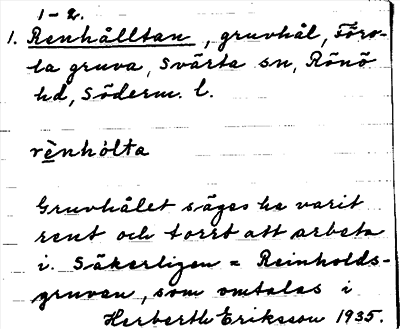 1-2.
1. Renhålltan, gruvhål, Föro-
la gruva, Svärta sn, Rönö
hd, Söderm. l.
rènhòlta
Gruvhålet säges ha varit
rent och torrt att arbeta
i. Säkerligen = Reinholds-
gruvan, som omtalas i
Herberth Eriksson 1935.